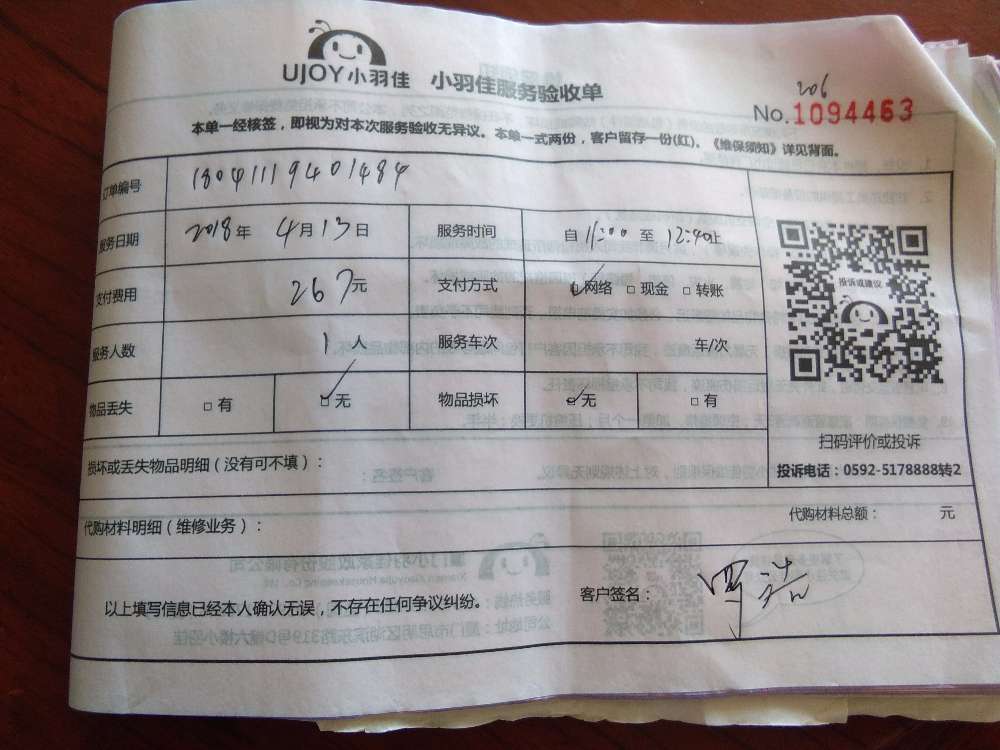 UJOY小羽佳 小羽佳服务验收单
206
No.1094463
本单一经核签，即视为对本次服务验收无异议。本单一式两份，客户留存一份(红)。《维保须知》详见背面。
订单编号 18041119401484
服务日期 2018年 4月13日 服务时间 自 11:00 至 12:40止
支付费用 267元 支付方式 网络 □现金 □转账
服务人数 1人 服务车次 车/次
物品丢失 □有 □无 物品损坏 □无 □有
投诉或建议
扫码评价或投诉
投诉电话：0592-5178888转2
损坏或丢失物品明细（没有可不填）：
代购材料明细（维修业务）： 代购材料总额： 元
以上填写信息已经本人确认无误，不存在任何争议纠纷。 客户签名： 罗浩